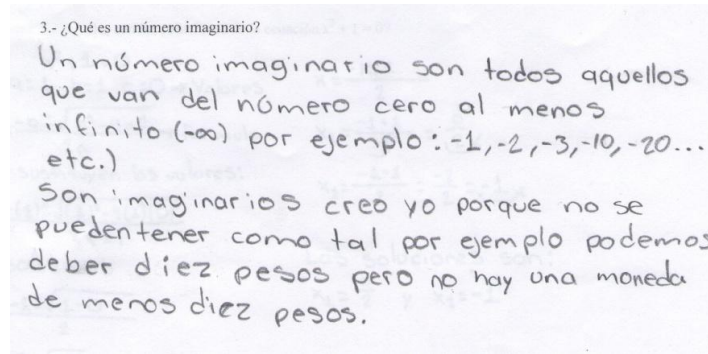 3.- ¿Qué es un número imaginario?
Un número imaginario son todos aquellos
que van del número cero al menos
infinito (-∞) por ejemplo: -1, -2, -3, -10, -20...
etc.)
Son imaginarios creo yo porque no se
pueden tener como tal por ejemplo podemos
deber diez pesos pero no hay una moneda
de menos diez pesos.